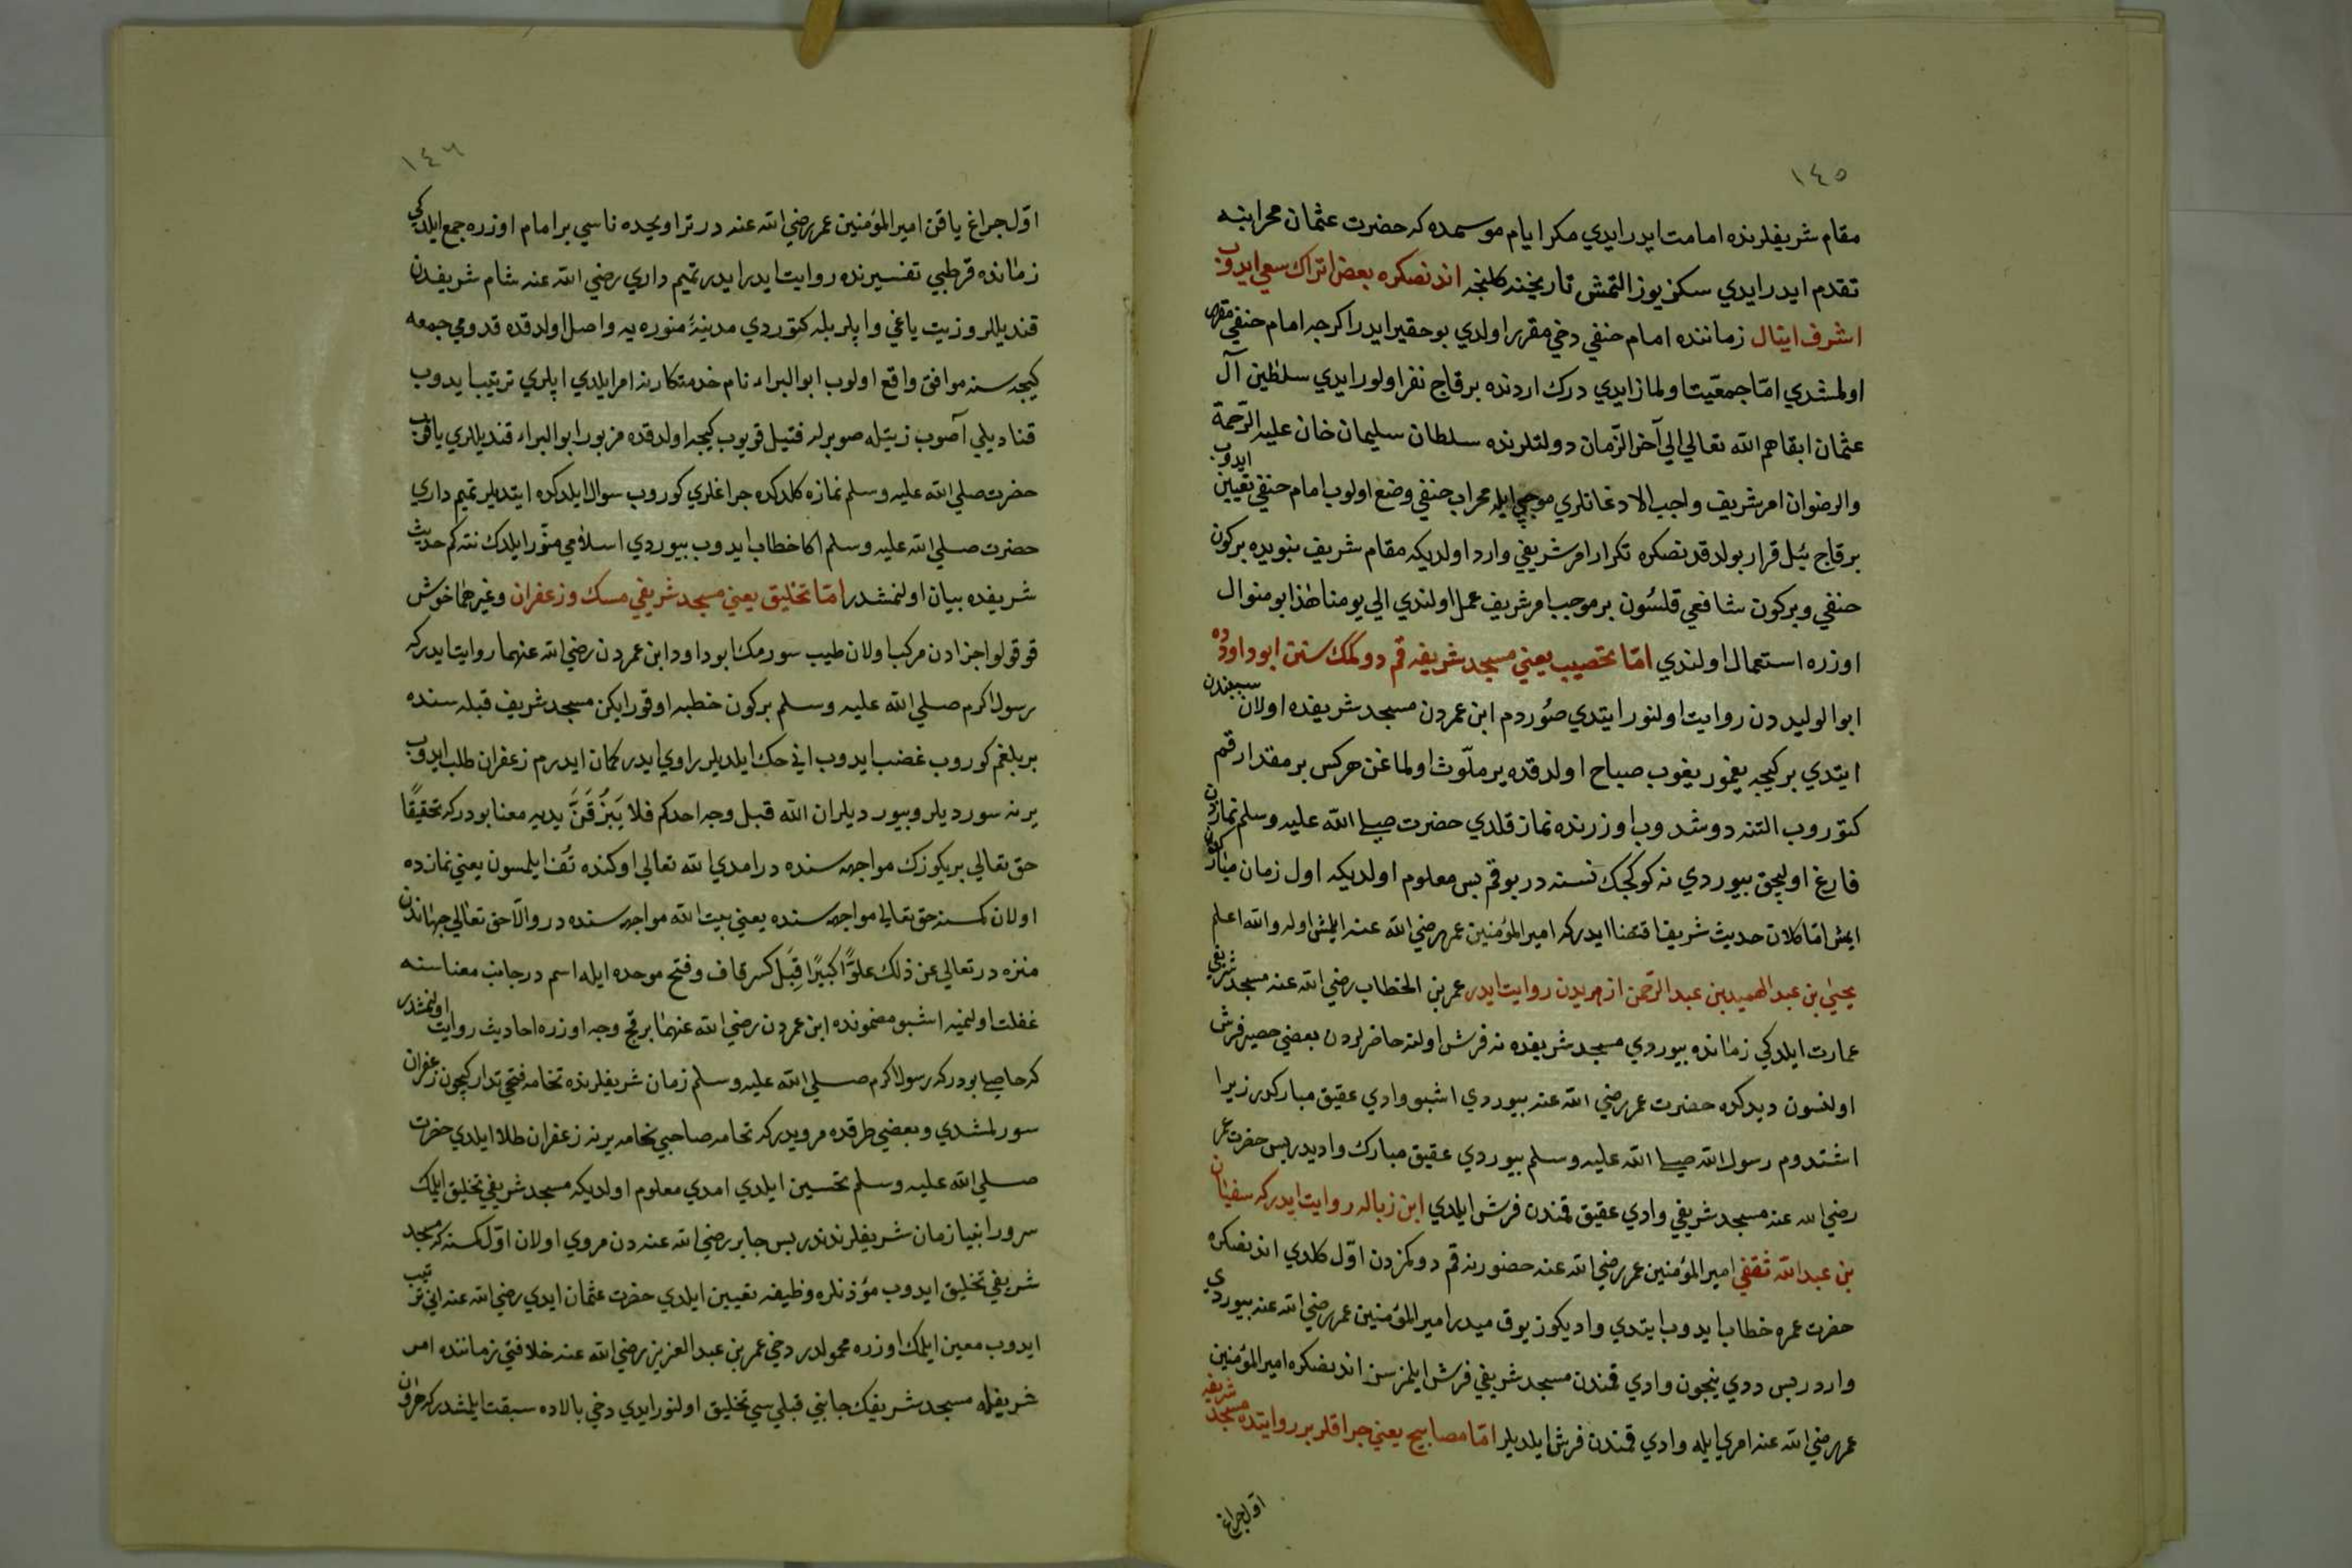 ١٤٥
مقام شريفلرنده امامت ايدر ايدي مكر ايام موسمده كه حضرت عثمان محرابنه
تقدم ايدر ايدي سكز يوز التمش تاريخنه كلنجه اندنصكره بعض اتراك سعي ايدوب
اشرف اينال زماننده امام حنفي دخي مقرر اولدي بو حقير ايدر اكرچه امام حنفي مقرر
اولمشدي امّا جمعيّت اولماز ايدي درك اردنده برقاج نفر اولور ايدي سلطين آل
عثمان ابقاهم الله تعالي الي آخر الزّمان دولتلرنده سلطان سليمان خان عليه الرّحمة
والرضوان امر شريف واجب الاذعانلري موجبي ايله محراب حنفي وضع اولوب امام حنفي تعيين ايدوب
برقاج ييل قرار بولدقدنصكره تكرار امر شريفي وارد اولديكه مقام شريف نبويده بركون
حنفي وبركون شافعي قلسُون بر موجب امر شريف عمل اولندي الي يومنا هذا بو منوال
اوزره استعمال اولندي امّا تحصيب يعني مسجد شريفه قم دوكمك سنن ابو داودده
ابو الوليد دن روايت اولنور ايتدي صُوردم ابن عمردن مسجد شريفده اولان سببندن
ايتدي بر كيجه يغمور يغوب صباح اولدقده ير ملّوث اولماغن هركس بر مقدار قم
كتوروب التنه دوشدوب اوزرنده نماز قلدي حضرت صلى الله عليه وسلم نمازدن
فارغ اوليجق بيوردي نه كوكجك نسنه در بو قم پس معلوم اولديكه اول زمان مباركده
ايمش امّا كلان حديث شريف اقتضا ايدركه امير المؤمنين عمر رضي الله عنه ايلمش اوله والله اعلم
يحيى بن عبد الحميد بن عبد الرّحمن ازهريدن روايت ايدر عمر بن الخطاب رضي الله عنه مسجد شريفي
عمارت ايلدكي زمانده بيوردي مسجد شريفده نه فرش اولنه حاضرلردن بعضي حصير فرش
اولنسون ديدكده حضرت عمر رضي الله عنه بيوردي اشبو وادي عقيق مباركدر زيرا
اشتدوم رسول الله صلى الله عليه وسلم بيوردي عقيق مبارك واديدر پس حضرت عمر
رضي الله عنه مسجد شريفي وادي عقيق قمندن فرش ايلدي ابن زباله روايت ايدركه سفيان
بن عبد الله ثقفي امير المؤمنين عمر رضي الله عنه حضورينه قم دوكمزدن اوّل كلدي اندنصكره
حضرت عمره خطاب ايدوب ايتدي واديكوز يوق ميدر امير المؤمنين عمر رضي الله عنه بيوردي
واردر پس ددي نيجون وادي قمندن مسجد شريفي فرش ايلمزسن اندنصكره امير المؤمنين
عمر رضي الله عنه امري ايله وادي قمندن فرش ايلديلر امّا مصابيح يعني جراقلر بر روايتده مسجد شريفه
اوّل جراغ
١٤٦
اوّل جراغ ياقن امير المؤمنين عمر رضي الله عنه در تراويحده ناسي بر امام اوزره جمع ايلدكي
زمانده قرطبي تفسيرنده روايت ايدر ايدر تميم داري رضي الله عنه شام شريفدن
قنديللر وزيت ياغي واپلر بله كتوردي مدينهٔ منوره يه واصل اولدقده قدومي جمعه
كيجه سنه موافق واقع اولوب ابو البراد نام خدمتكارينه امر ايلدي اپلري ترتيب ايدوب
قناديلي آصوب زيتله صو برله فتيل قويوب كيجه اولدقده مزبور ابو البراد قنديللري ياقوب
حضرت صلي الله عليه وسلم نمازه كلدكده جراغلري كوروب سوال ايلدكده ايتديلر تميم داري
حضرت صلي الله عليه وسلم اكا خطاب ايدوب بيوردي اسلامي منّور ايلدك نته كم حديث
شريفده بيان اولنمشدر امّا تخليق يعني مسجد شريفي مسك وزعفران وغيرهما خوش
قوقولو اجزادن مركب اولان طيب سورمك ابو داود ابن عمردن رضي الله عنهما روايت ايدركه
رسول اكرم صلي الله عليه وسلم بركون خطبه اوقورايكن مسجد شريف قبله سنده
بر بلغم كوروب غضب ايدوب اني حك ايلديلر راوي ايدر كمان ايدرم زعفران طلب ايدوب
يرينه سورديلر وبيورديلر ان الله قبل وجه احدكم فلا يَبْزُقَنَّ بين يديه معنا بودركه تحقيقًا
حق تعالي بريكوزك مواجهه سنده در امدي الله تعالي اوكنده تُف ايلمسون يعني نمازده
اولان كمسنه حق تعالي مواجهه سنده يعني بيت الله مواجهه سنده در والّا حق تعالي جهاندن
منزه در تعالي عن ذلك علوًّا كبيرًا قِبَل كسر قاف وفتح موحده ايله اسم در جانب معناسنه
غفلت اولنميه اشبو مضمونده ابن عمردن رضي الله عنهما بر قچ وجه اوزره احاديث روايت اولنمشدر
كه حاصلي بودركه رسول اكرم صلي الله عليه وسلم زمان شريفلرنده نخامه فتحي تدارك يچون زعفران
سورلمشدي وبعضي طرقده مرويدركه نخامه صاحبي نخامه يرينه زعفران طلا ايلدي حضرت
صلي الله عليه وسلم تحسين ايلدي امدي معلوم اولديكه مسجد شريفي تخليق ايلك
سرور انبيا زمان شريفلرندندر پس جابر رضي الله عنه دن مروي اولان اوّل كمسنه كه مسجد
شريفي تخليق ايدوب مؤذنلره وظيفه تعيين ايلدي حضرت عثمان ايدي رضي الله عنه اني ترتيب
ايدوب معين ايلمك اوزره محمولدر دخي عمر بن عبد العزيز رضي الله عنه خلافتي زماننده امر
شريفله مسجد شريفك جانبي قبلي سي تخليق اولنور ايدي دخي بالاده سبقت ايلمشدركه